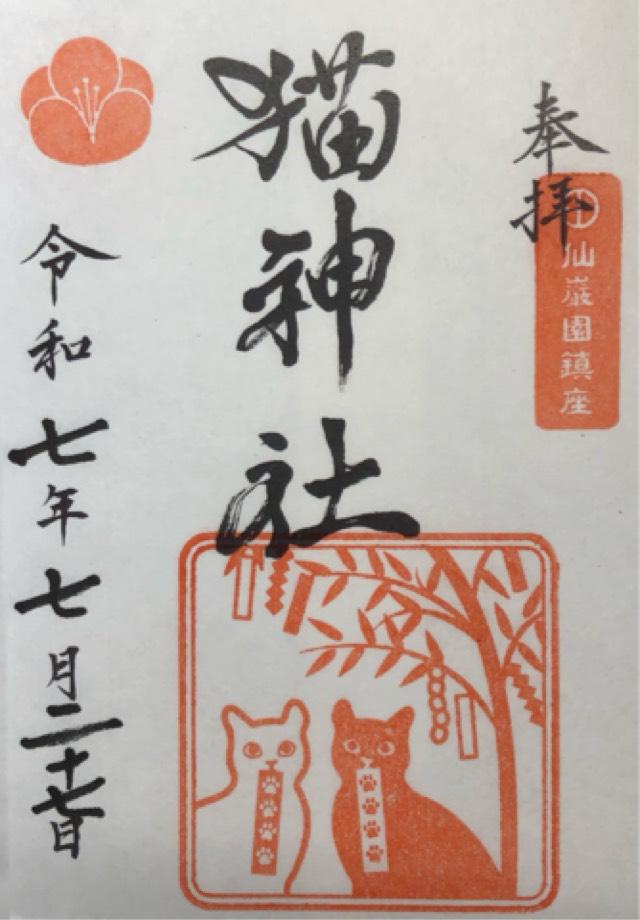 奉拝
仙巌園鎮座
猫神社
令和七年七月二十七日